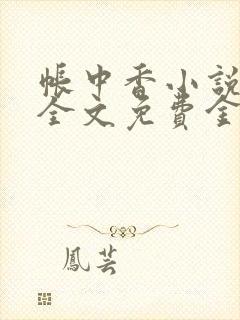 帳中香小說
全文免費全
鳳芸